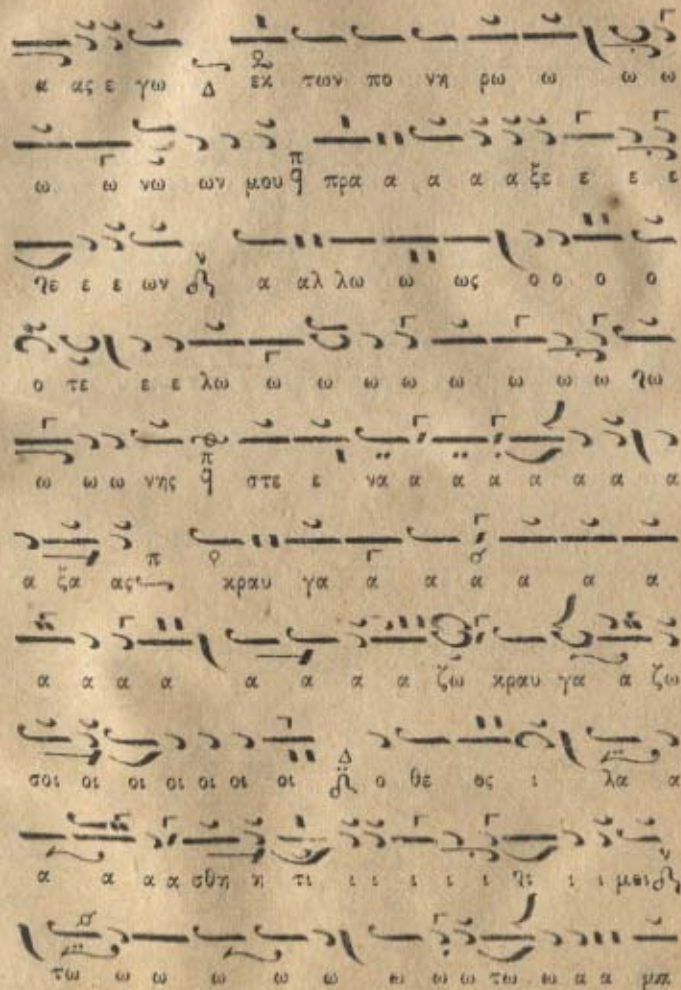 α ας ε γω Δ εκ των πο νη ρω ω ω ω
ω ω νω ων μου π q πρα α α α α ξε ε ε ε
χε ε ε ων ν α αλ λω ω ως ο ο ο ο
ο τε ε ε λω ω ω ω ω ω ω ω ω χω
ω ω ω νης π q στε ε να α α α α α α α
α ξα ας π κραυ γα α α α α α α
α α α α α α α α ζω κραυ γα α ζω
σοι οι οι οι οι οι οι Δ ο θε ος ι λα α
α α α α σθη η τι ι ι ι ι ι χι ι ι μοι ν
τω ω ω ω ω ω ω ω ω τω ω α α μπ